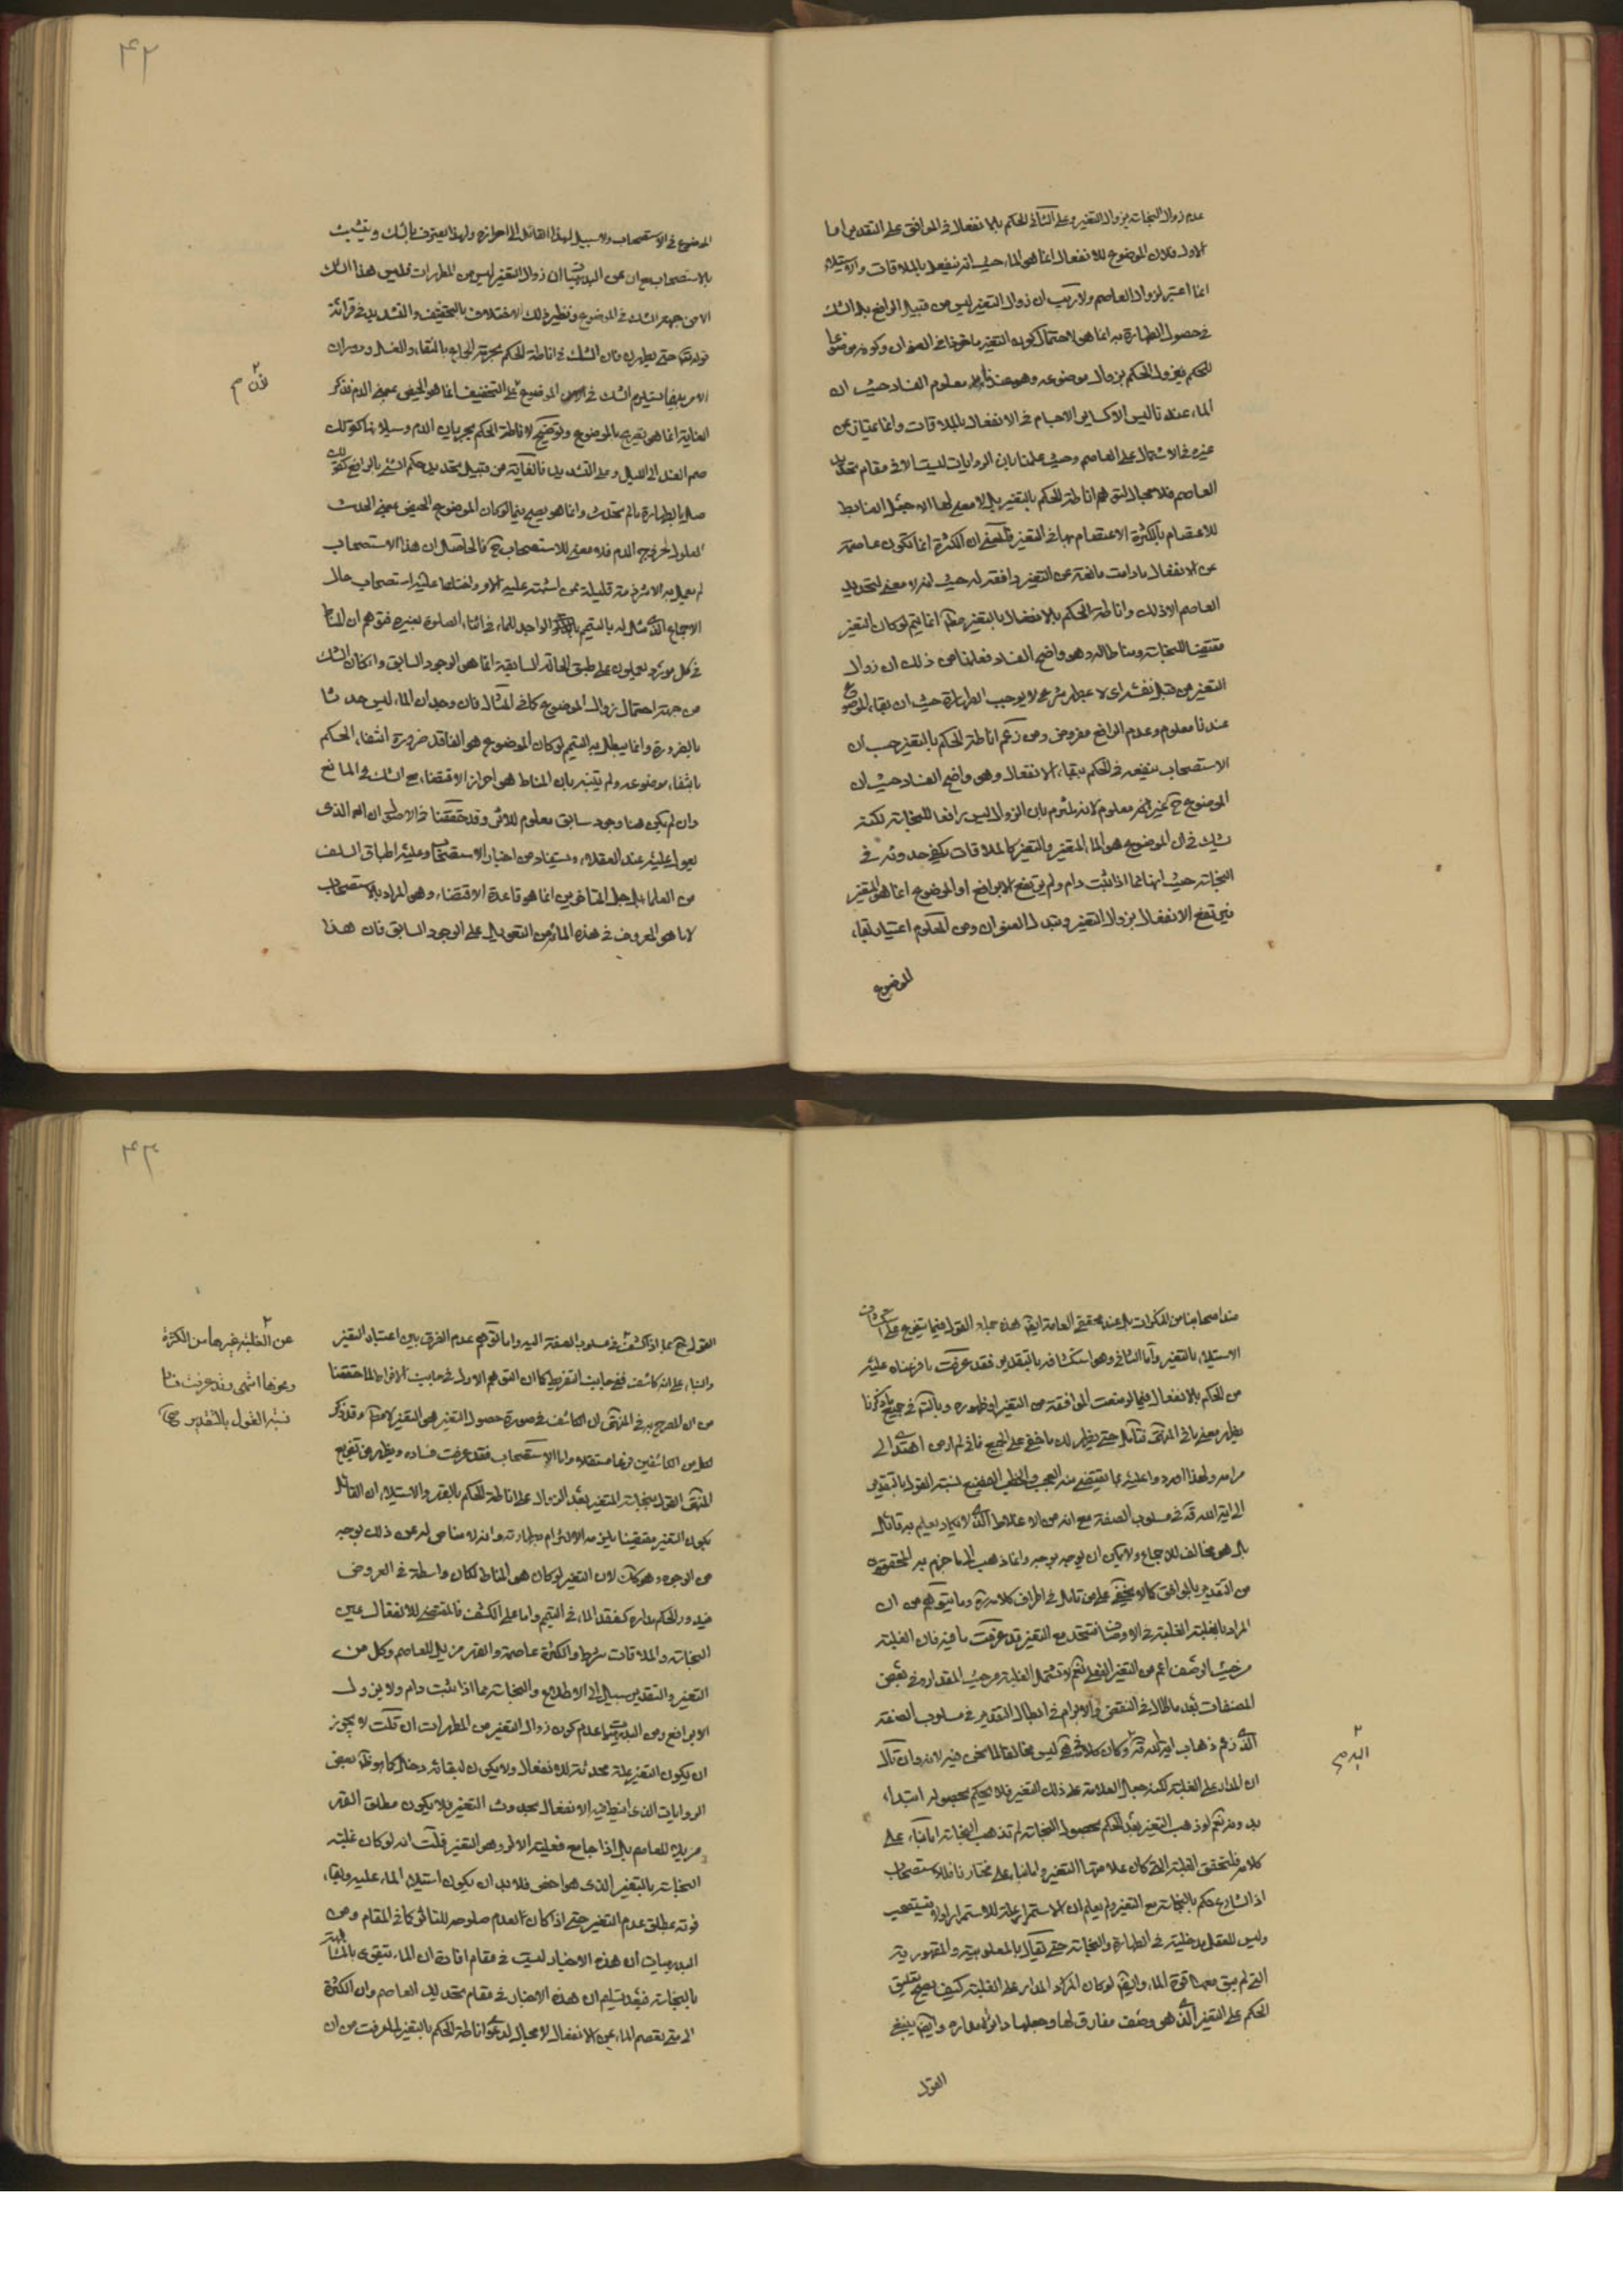 عدم زوال النجاسة بزوال التغير وعلى الثاني الحكم بالانفعال في الموافق على التقدير اما
الاول فلان الموضوع للانفعال انما هو الماء حيث انه ينفعل بالملاقات والاستيلاء
انما اعتبر لزوال العاصم ولا ريب ان زوال التغير ليس من قبيل الرافع بل الشك
في حصول الطهارة به انما هو لاحتمال كون التغير ماخوذا في العنوان وكونه موضوعا
للحكم فيزول الحكم بزوال موضوعه وهو عندنا معلوم الفساد حيث ان
الماء عندنا ليس الا كساير الاجسام في الانفعال بالملاقات وانما يمتاز عن
غيره في الاشتمال على العاصم وحيث علمنا بان الروايات ليست الا في مقام تحديد
العاصم فلا مجال لتوهم اناطة الحكم بالتغير بل لا معنى لها الا جعل الضابط
للاعتصام بالكثرة الاعتصام بها في التغير فمعنى ان الكثرة انما تكون عاصمة
عن الانفعال ما دامت مانعة عن التغير دافعة له حيث انه لا معنى لتحديد
العاصم الا ذلك واناطة الحكم بالانفعال بالتغير انما يتم لو كان التغير
مقتضيا للنجاسة ومناطا له وهو واضح الفساد فعلمنا من ذلك ان زوال
التغير من قبل نفسه اي لا بمطهر شرعي لا يوجب الطهارة حيث ان بقاء الموضوع
عندنا معلوم وعدم الرافع مفروض ومن زعم اناطة الحكم بالتغير حسب ان
الاستصحاب ينفعه في الحكم ببقاء الانفعال وهو واضح الفساد حيث ان
الموضوع ح غير معلوم لانه ملتزم بان الزوال ليس رافعا للنجاسة لكنه
يشك في ان الموضوع هو الماء المتغير والتغير كالملاقات يكفي حدوثه في
النجاسة حيث انها مما اذا ثبت دام ولم يرتفع الا برافع او الموضوع انما هو المتغير
فيرتفع الانفعال بزوال التغير وتبدل العنوان ومن المعلوم اعتبار بقاء
الموضوع
۴۲
الموضوع في الاستصحاب ولا سبيل لهذا القائل الى احرازه ولهذا يعترف بالشك ويتشبث
بالاستصحاب مع ان من البديهيات ان زوال التغير ليس من المطهرات فليس هذا الشك
الا من جهة الشك في الموضوع ونظير ذلك الاختلاف بالتخفيف والتشديد في قرائة
قوله تعالى حتى يطهرن فان الشك في اناطة الحكم بحرمة الجماع بالنقاء والغسل ودوران
الامر بينهما يستلزم الشك في الموضوع على التخفيف انما هو الحيض بمعنى الدم فذكر
لان م
الغاية انما هو تصريح بالموضوع وتوضيح لاناطة الحكم بجريان الدم وسيلانه كقولك
صم الغد الى الليل وعلى التشديد فالغاية من قبيل تحديد حكم الشيء بالرافع كقولك
صل بالطهارة ما لم تحدث وانما هو يصح فيما لو كان الموضوع الحيض بمعنى الحدث
المعلول لخروج الدم فلا معنى للاستصحاب ح فالحاصل ان هذا الاستصحاب
لم يعمل به الا شرذمة قليلة ممن اشتبه عليه الامر ولفظها عليه استصحاب حال
الاجماع الذي مثال له بالمتيمم الواجد للماء في اثناء الصلوة بعينه فتوهم ان المناط
في كل مورد يعملون على طبق الحالة السابقة انما هو الوجود السابق وان كان الشك
من جهة احتمال زوال الموضوع كما في المثال فان وجدان الماء ليس حدثا
بالضرورة وانما يبطل به التيمم لو كان الموضوع هو الفاقد ضرورة انتفاء الحكم
بانتفاء موضوعه ولم يتنبه بان المناط هو احراز الاقتضاء مع الشك في المانع
وان لم يكن هنا وجود سابق معلوم للاثر وقد حققنا في الاصول ان الذي
يعول عليه عند العقلاء ويستفاد من اخبار الاستصحاب وعليه اطباق السلف
من العلماء بل جل المتاخرين انما هو قاعدة الاقتضاء وهو المراد بالاستصحاب
لا ما هو المعروف في هذه الازمنة من التعويل على الوجود السابق فان هذا
عند اصحابنا من المنكرات بل عند محققي العامة ايضا هذه جملة القول فيما يتفرع على
الاستيلاء بالتغير واما الثاني وهو استكشافه بالتقدير فقد عرفت ما فرعناه عليه
من الحكم بالانفعال فيما لو منعت الموافقة من التغير او ظهوره وبالتامل في جميع ما ذكرنا
يظهر معنى ما في المنتهى فتامل حتى يظهر لك ما خفي على الجميع فاني لم ار من اهتدى الى
مرامه ولهذا اوردوا عليه بما يقتضي منه العجب والخطب الفضيع نسبة القول بالتقدير
الى اية الله قده في مسلوب الصفة مع انه من الاغلاط الذي لا يكاد يعلم به قائل
بل هو مخالف للاجماع ولا يمكن ان يوجه بوجه وانما ذهب الى ما جزم به المحقق
من التقدير بالموافق كما لا يخفى على من تامل في اطراف كلامه وما يتوهم من ان
المراد بالغلبة الغلبة في الاوصاف فتتحد مع التغير قد عرفت ما فيه فان الغلبة
من حيث الوصف اعم من التغير الفعلي نعم لا تشتمل الغلبة من حيث المقدار وفي بعض
المصنفات بعد ما اطال في النقض والابرام في ابطال التقدير في مسلوب الصفة
الذي زعم ذهاب اية الله قده وكان كلامه ليس مخالفا لما نحن فيه لانه وان قال
البه م
ان المدار على الغلبة لكنه جعل العلامة على ذلك التغير فلا يحكم بحصوله ابتداء
بدونه نعم لو ذهب التغير بعد الحكم بحصول النجاسة لم تذهب النجاسة اما بناء على
كلامه فلتحقق الغلبة التي كان علامتها التغير واما بناء على مختارنا فللاستصحاب
اذ الشارع حكم بالنجاسة مع التغير ولم يعلم ان الاستمرار علة للاستمرار اولا فيستصحب
وليس للعقل مدخلية في الطهارة والنجاسة حتى يقال بالمغلوبية والمقهورية
التي لم يبق معها قوة الماء وايضا لو كان المراد المدار على الغلبة كيف يصح تعليق
الحكم على التغير الذي هو وصف مفارق لها وجعلها دائرا مداره وايضا ينبغي
القول
۴۳
القول ح بما اذا كشف في مسلوب الصفة اليه واما توهم عدم الفرق بين اعتبار التغير
عن الغلبة غيرها من الكثرة
والبناء على انه كاشف ففي جانب التفريط كما ان التوهم الاول في جانب الافراط لما حققنا
ونحوها انتهى وقد عرفت فساد
من ان المصرح به في المنتهى ان الكاشف في صورة حصول التغير هو التغير لا مط وقد ذكر
نسبة القول بالتقدير
لكل من الكاشفين فرعا مستقلا واما الاستصحاب فقد عرفت فساده ويظهر من تفريع
المنتهى القول بنجاسة المتغير بعد الزوال على اناطة الحكم بالقهر والاستيلاء ان القائل
بكون التغير مقتضيا يلزمه الالتزام بطهارته وانه لا مناص له عن ذلك بوجه
من الوجوه وهو كك لان التغير لو كان هو المناط لكان واسطة في العروض
فيدور الحكم مداره كفقد الماء في التيمم واما على الكشف فالمقتضي للانفعال عين
النجاسة والملاقات شرط والكثرة عاصمة والقهر مزيل للعاصم وكل من
التغير والتقدير سبيل الى الاطلاع والنجاسة مما اذا ثبت دام ولا يزول
الا برافع ومن البديهيات عدم كون زوال التغير من المطهرات ان قلت لا يجوز
ان يكون التغير علة محدثة للانفعال ولا يكون لبقائه دخل كما هو ظاهر بعض
الروايات الذي انيط فيه الانفعال بحدوث التغير فلا يكون مطلق القهر
مزيلا للعاصم بل اذا جامع فعلية الاثر وهو التغير قلت انه لو كان غلبة
النجاسة بالتغير الذي هو اخص فلا بد ان يكون استيلاء الماء عليه وبقاء
قوته بمطلق عدم التغير حتى اذا كان العدم صلوحه للتاثر كما في المقام ومن
البديهيات ان هذه الاخبار ليست في مقام افادة ان الماء يتقوى
بالنجاسة فبعد تسليم ان هذه الاخبار في مقام تحديد العاصم وان الكثرة
الى متى تعصم الماء عن الانفعال لا مجال لدعوى اناطة الحكم بالتغير لما عرفت من ان